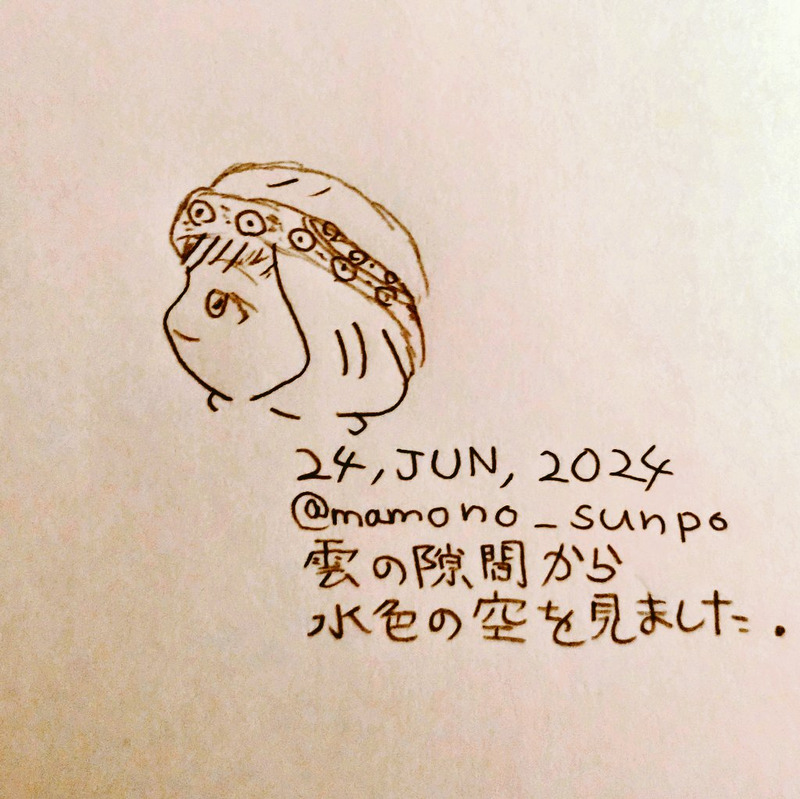 24, JUN, 2024
@mamono_sunpo
雲の隙間から
水色の空を見ました.